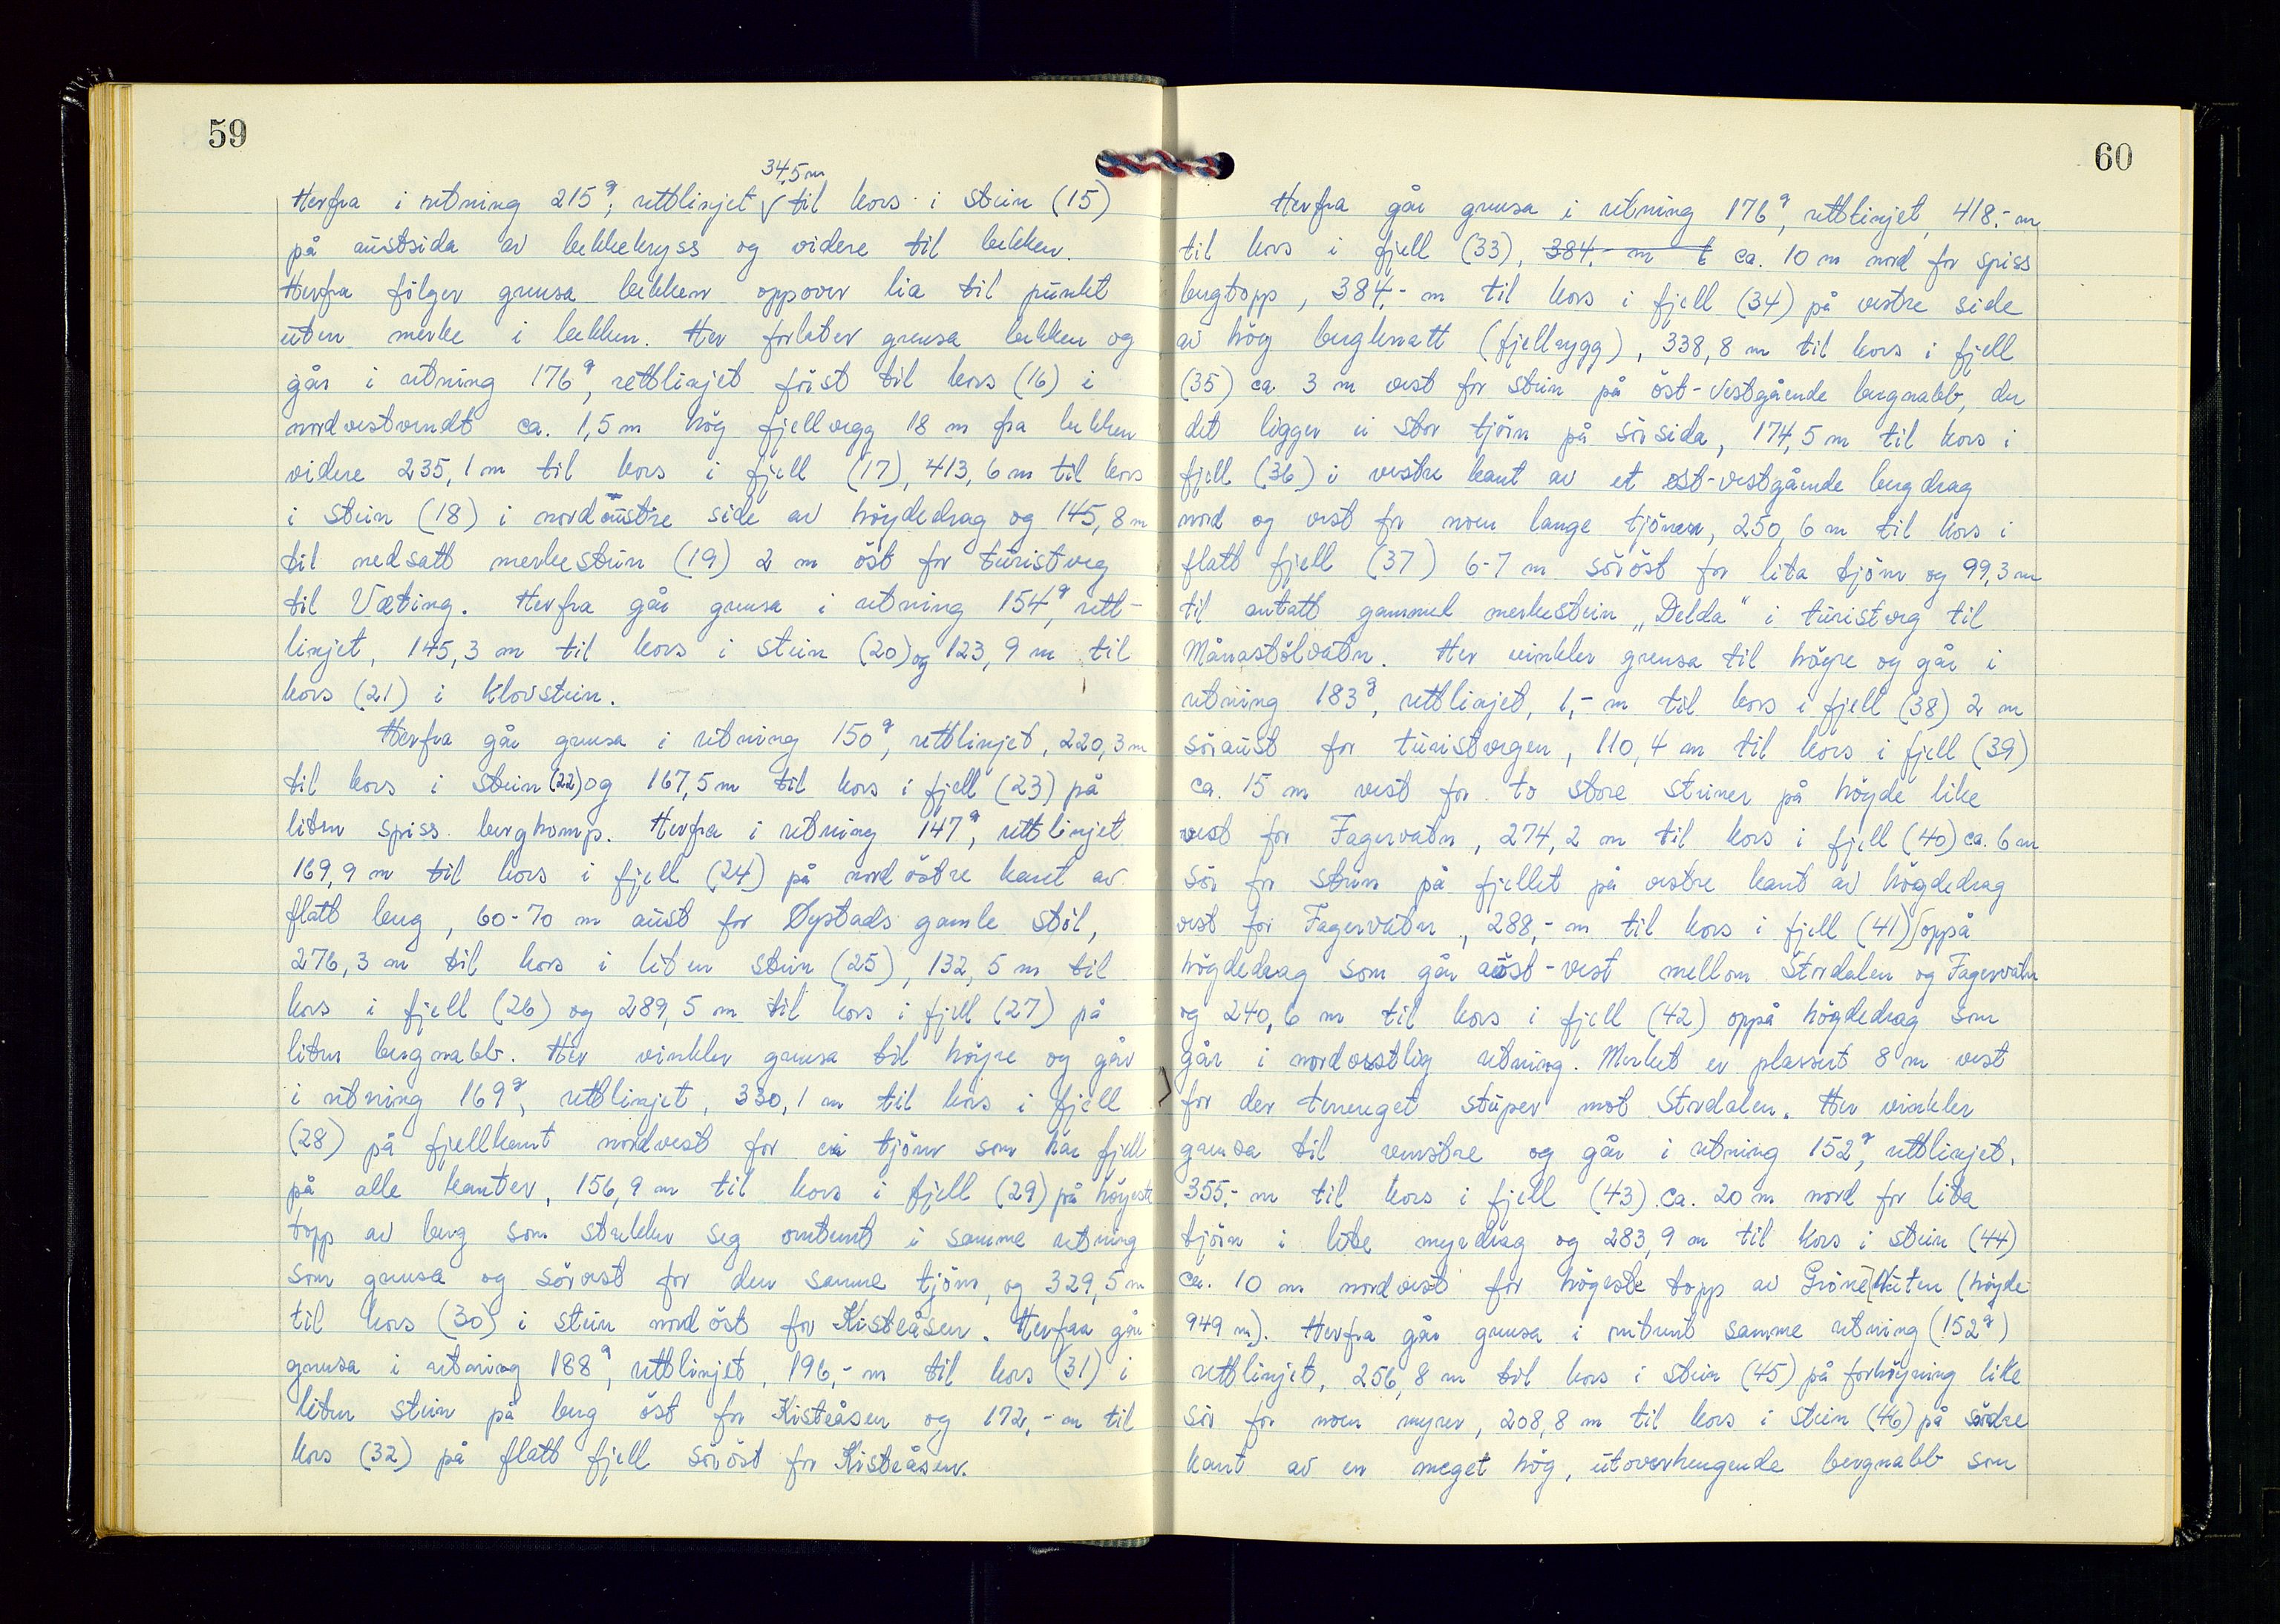 59
34,5 m
Herfra i retning 215g, rettlinjet √ til kors i stein (15)
på austsida av bekkekryss og videre til bekken.
Herfra følger grensa bekken oppover lia til punkt
uten merke i bekken. Her forlater grensa bekken og
går i retning 176g, rettlinjet först til kors (16) i
nordvestvendt ca. 1,5 m hög fjellvegg 18 m fra bekken
videre 235,1 m til kors i fjell (17), 413,6 m til kors
i stein (18) i nordöstre side av höydedrag og 145,8 m
til nedsatt merkestein (19) 2 m öst for turistveg
til Væting. Herfra går grensa i retning 154g, rett-
linjet, 145,3 m til kors i stein (20) og 123,9 m til
kors (21) i klovstein.
Herfra går grensa i retning 150g, rettlinjet, 220,3 m
til kors i stein (22) og 167,5 m til kors i fjell (23) på
liten spiss berghomp. Herfra i retning 147g, rettlinjet
169,9 m til kors i fjell (24) på nordöstre kant av
flatt berg, 60-70 m aust for Dystads gamle stöl,
276,3 m til kors i liten stein (25), 132,5 m til
kors i fjell (26) og 289,5 m til kors i fjell (27) på
liten bergnabb. Her vinkler grensa til höyre og går
i retning 169g, rettlinjet, 330,1 m til kors i fjell
(28) på fjellkant nordvest for ei tjönn som har fjell
på alle kanter, 156,9 m til kors i fjell (29) på höyeste
topp av berg som strekker seg omtrent i samme retning
som grensa og sörvest for den samme tjönn, og 329,5 m
til kors (30) i stein nordöst for Kisteåsen. Herfra går
grensa i retning 188g, rettlinjet, 196,- m til kors (31) i
liten stein på berg öst for Kisteåsen og 172,- m til
kors (32) på flatt fjell söröst for Kisteåsen.
60
Herfra går grensa i retning 176g, rettlinjet, 418,- m
til kors i fjell (33), 384,- m t ca. 10 m nord for spiss
bergtopp, 384,- m til kors i fjell (34) på vestre side
av hög bergknatt (fjellrygg), 338,8 m til kors i fjell
(35) ca. 3 m vest for stein på öst-vestgående bergnabb, der
det ligger ei stor tjörn på sörsida, 174,5 m til kors i
fjell (36) i vestre kant av et øst-vestgående bergdrag
nord og vest for noen lange tjönner, 250,6 m til kors i
flatt fjell (37) 6-7 m söröst for lita tjönn og 99,3 m
til antatt gammel merkestein „Delda“ i turistveg til
Månastölvatn. Her vinkler grensa til högre og går i
retning 183g, rettlinjet, 1,- m til kors i fjell (38) 2 m
söraust for turistvegen, 110,4 m til kors i fjell (39)
ca. 15 m vest for to store steiner på höyde like
vest for Fagervatn, 274,2 m til kors i fjell (40) ca. 6 m
sör for stein på fjellet på vestre kant av högdedrag
vest for Fagervatn, 288,- m til kors i fjell (41) oppå
högdedrag som går aust-vest mellom Stordalen og Fagervatn
og 240,6 m til kors i fjell (42) oppå högdedrag som
går i nordvestlig retning. Merket er plassert 8 m vest
for der terrenget stuper mot Stordalen. Her vinkler
grensa til venstre og går i retning 152g, rettlinjet,
355,- m til kors i fjell (43) ca. 20 m nord for lita
tjörn i lite myrdrag og 283,9 m til kors i stein (44)
ca. 10 m nordvest for högeste topp av Gröne Nuten (höyde
949 m). Herfra går grensa i omtrent samme retning (152g)
rettlinjet, 256,8 m til kors i stein (45) på forhöyning like
sör for noen myrer, 208,8 m til kors i stein (46) på södre
kant av en meget hög, utoverhengende bergnabb som